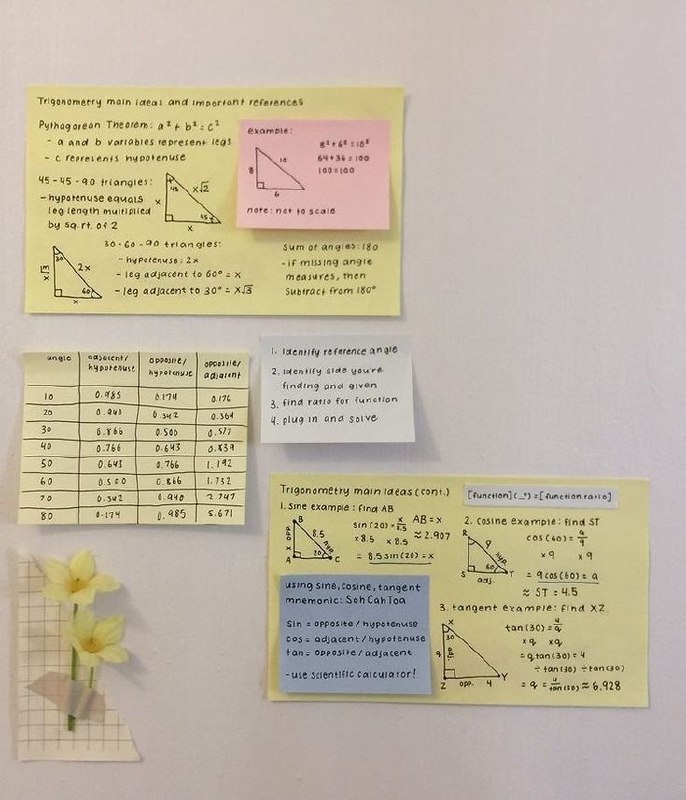 Trigonometry main ideas and important references
Pythagorean Theorem: a² + b² = c²
- a and b variables represent legs
- c represents hypotenuse
example:
8
10
6
8² + 6² = 10²
64 + 36 = 100
100 = 100
note: not to scale
45-45-90 triangles:
- hypotenuse equals
leg length multiplied
by sq. rt. of 2
45
x√2
x
45
x
30-60-90 triangles:
- hypotenuse: 2x
- leg adjacent to 60° = x
- leg adjacent to 30° = x√3
30
x√3
2x
60
x
sum of angles: 180
- if missing angle
measures, then
subtract from 180°
angle adjacent/hypotenuse opposite/hypotenuse opposite/adjacent
10 0.985 0.174 0.176
20 0.940 0.342 0.364
30 0.866 0.500 0.577
40 0.766 0.643 0.839
50 0.643 0.766 1.192
60 0.500 0.866 1.732
70 0.342 0.940 2.747
80 0.174 0.985 5.671
1. identify reference angle
2. identify side you're
finding and given
3. find ratio for function
4. plug in and solve
Trigonometry main ideas (cont.)
[function](_°) = [function ratio]
1. sine example: find AB
B
x opp.
8.5
hyp.
20
A
C
sin(20) = x/8.5
x 8.5 x 8.5
= 8.5 sin(20) = x
AB = x
≈ 2.907
2. cosine example: find ST
R
9
hyp.
60
S
T
adj.
cos(60) = a/9
x9 x9
= 9 cos(60) = a
≈ ST = 4.5
using sine, cosine, tangent
mnemonic: Soh Cah Toa
sin = opposite/hypotenuse
cos = adjacent/hypotenuse
tan = opposite/adjacent
- use scientific calculator!
3. tangent example: find XZ
X
30
q
adj.
Z
opp.
4
Y
tan(30) = 4/q
xq xq
= q tan(30) = 4
÷ tan(30) ÷ tan(30)
= q = 4/tan(30) ≈ 6.928